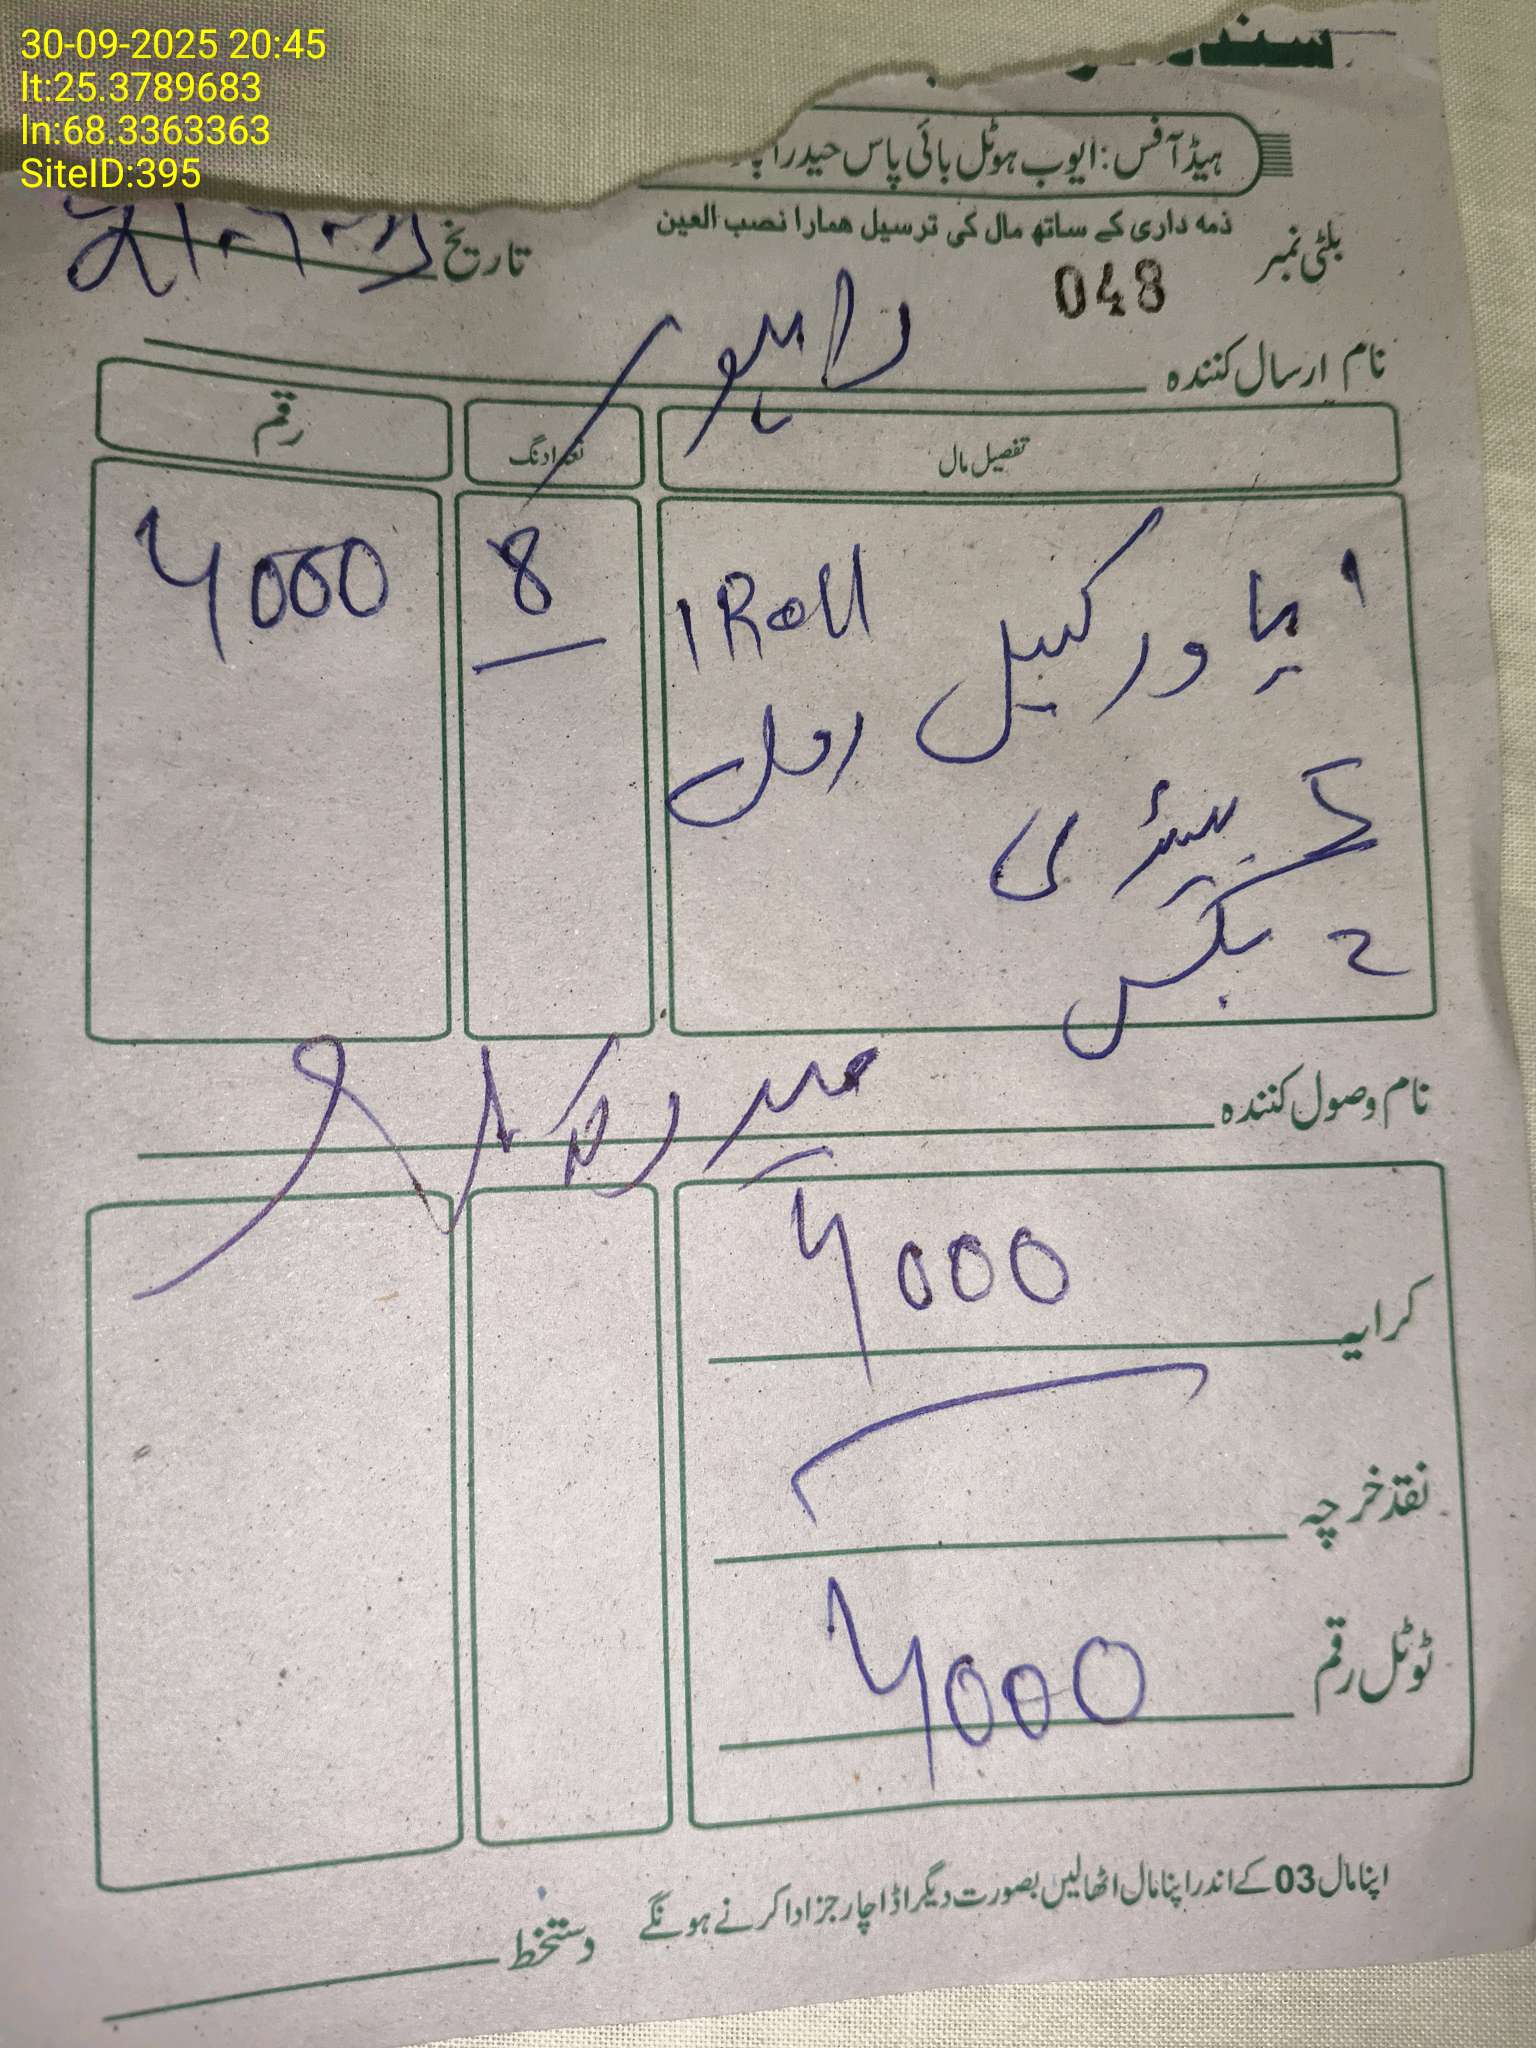 30-09-2025 20:45
lt:25.3789683
ln:68.3363363
SiteID:395
ہیڈ آفس: ایوب ہوٹل بائی پاس حیدرآباد
ذمہ داری کے ساتھ مال کی ترسیل ہمارا نصب العین
بلٹی نمبر 048 تاریخ
نام ارسال کنندہ لاہور
تفصیل مال تعداد نگ رقم
1 پاور کیبل رول 1 Roll 8 4000
بیٹری
2 بکس
نام وصول کنندہ حیدرآباد
کرایہ 4000
نقد خرچہ
ٹوٹل رقم 4000
اپنا مال 03 کے اندر اپنا مال اٹھالیں بصورت دیگر اڈا چارجز ادا کرنے ہونگے
دستخط